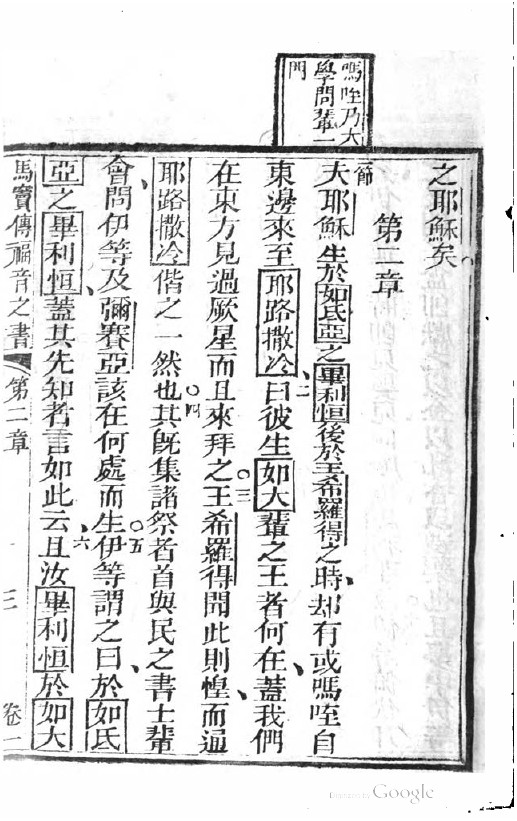 嗎咥乃大
學問輩一
門
之耶穌矣
第二章
一節
夫耶穌生於如氐亞之畢利恒後於王希羅得之時、却有或嗎咥自
東邊來至耶路撒冷、二曰彼生如大輩之王者何在、蓋我們
在東方見過厥星而且來拜之○三王希羅得聞此則惶、而逼
耶路撒冷偕之一然也○四其既集諸祭者首與民之書士輩
會、問伊等及彌賽亞該在何處而生○五伊等謂之曰、於如氐
亞之畢利恒、蓋其先知者言如此云、六且汝畢利恒於如大
馬竇傳福音之書 第二章 三 卷一
Digitized by Google